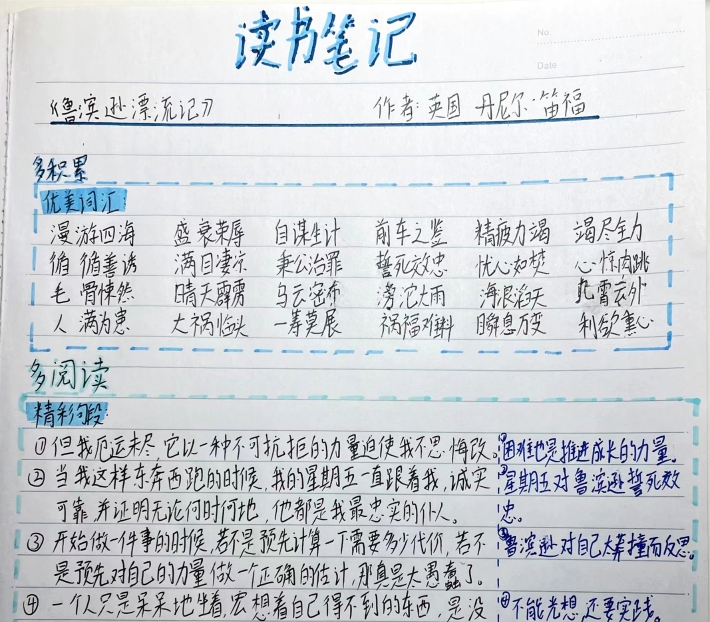 读书笔记
No.
Date
《鲁滨逊漂流记》 作者:英国 丹尼尔·笛福
多积累
优美词汇
漫游四海 盛衰荣辱 自谋生计 前车之鉴 精疲力竭 竭尽全力
循循善诱 满目凄凉 秉公治罪 誓死效忠 忧心如焚 心惊肉跳
毛骨悚然 晴天霹雳 乌云密布 滂沱大雨 海浪滔天 九霄云外
人满为患 大祸临头 一筹莫展 祸福难料 瞬息万变 利欲熏心
多阅读
精彩句段
①但我厄运未尽,它以一种不可抗拒的力量迫使我不思悔改。 ①困难也是推进成长的力量。
②当我这样东奔西跑的时候,我的星期五一直跟着我,诚实 ②星期五对鲁滨逊誓死效
可靠,并证明无论何时何地,他都是我最忠实的仆人。 忠。
③开始做一件事的时候,若不是预先计算一下需要多少代价,若不 ③鲁滨逊对自己太莽撞而反思。
是预先对自己的力量做一个正确的估计,那真是太愚蠢了。
④一个人只是呆呆地坐着,空想着自己得不到的东西,是没 ④不能光想,还要实践。